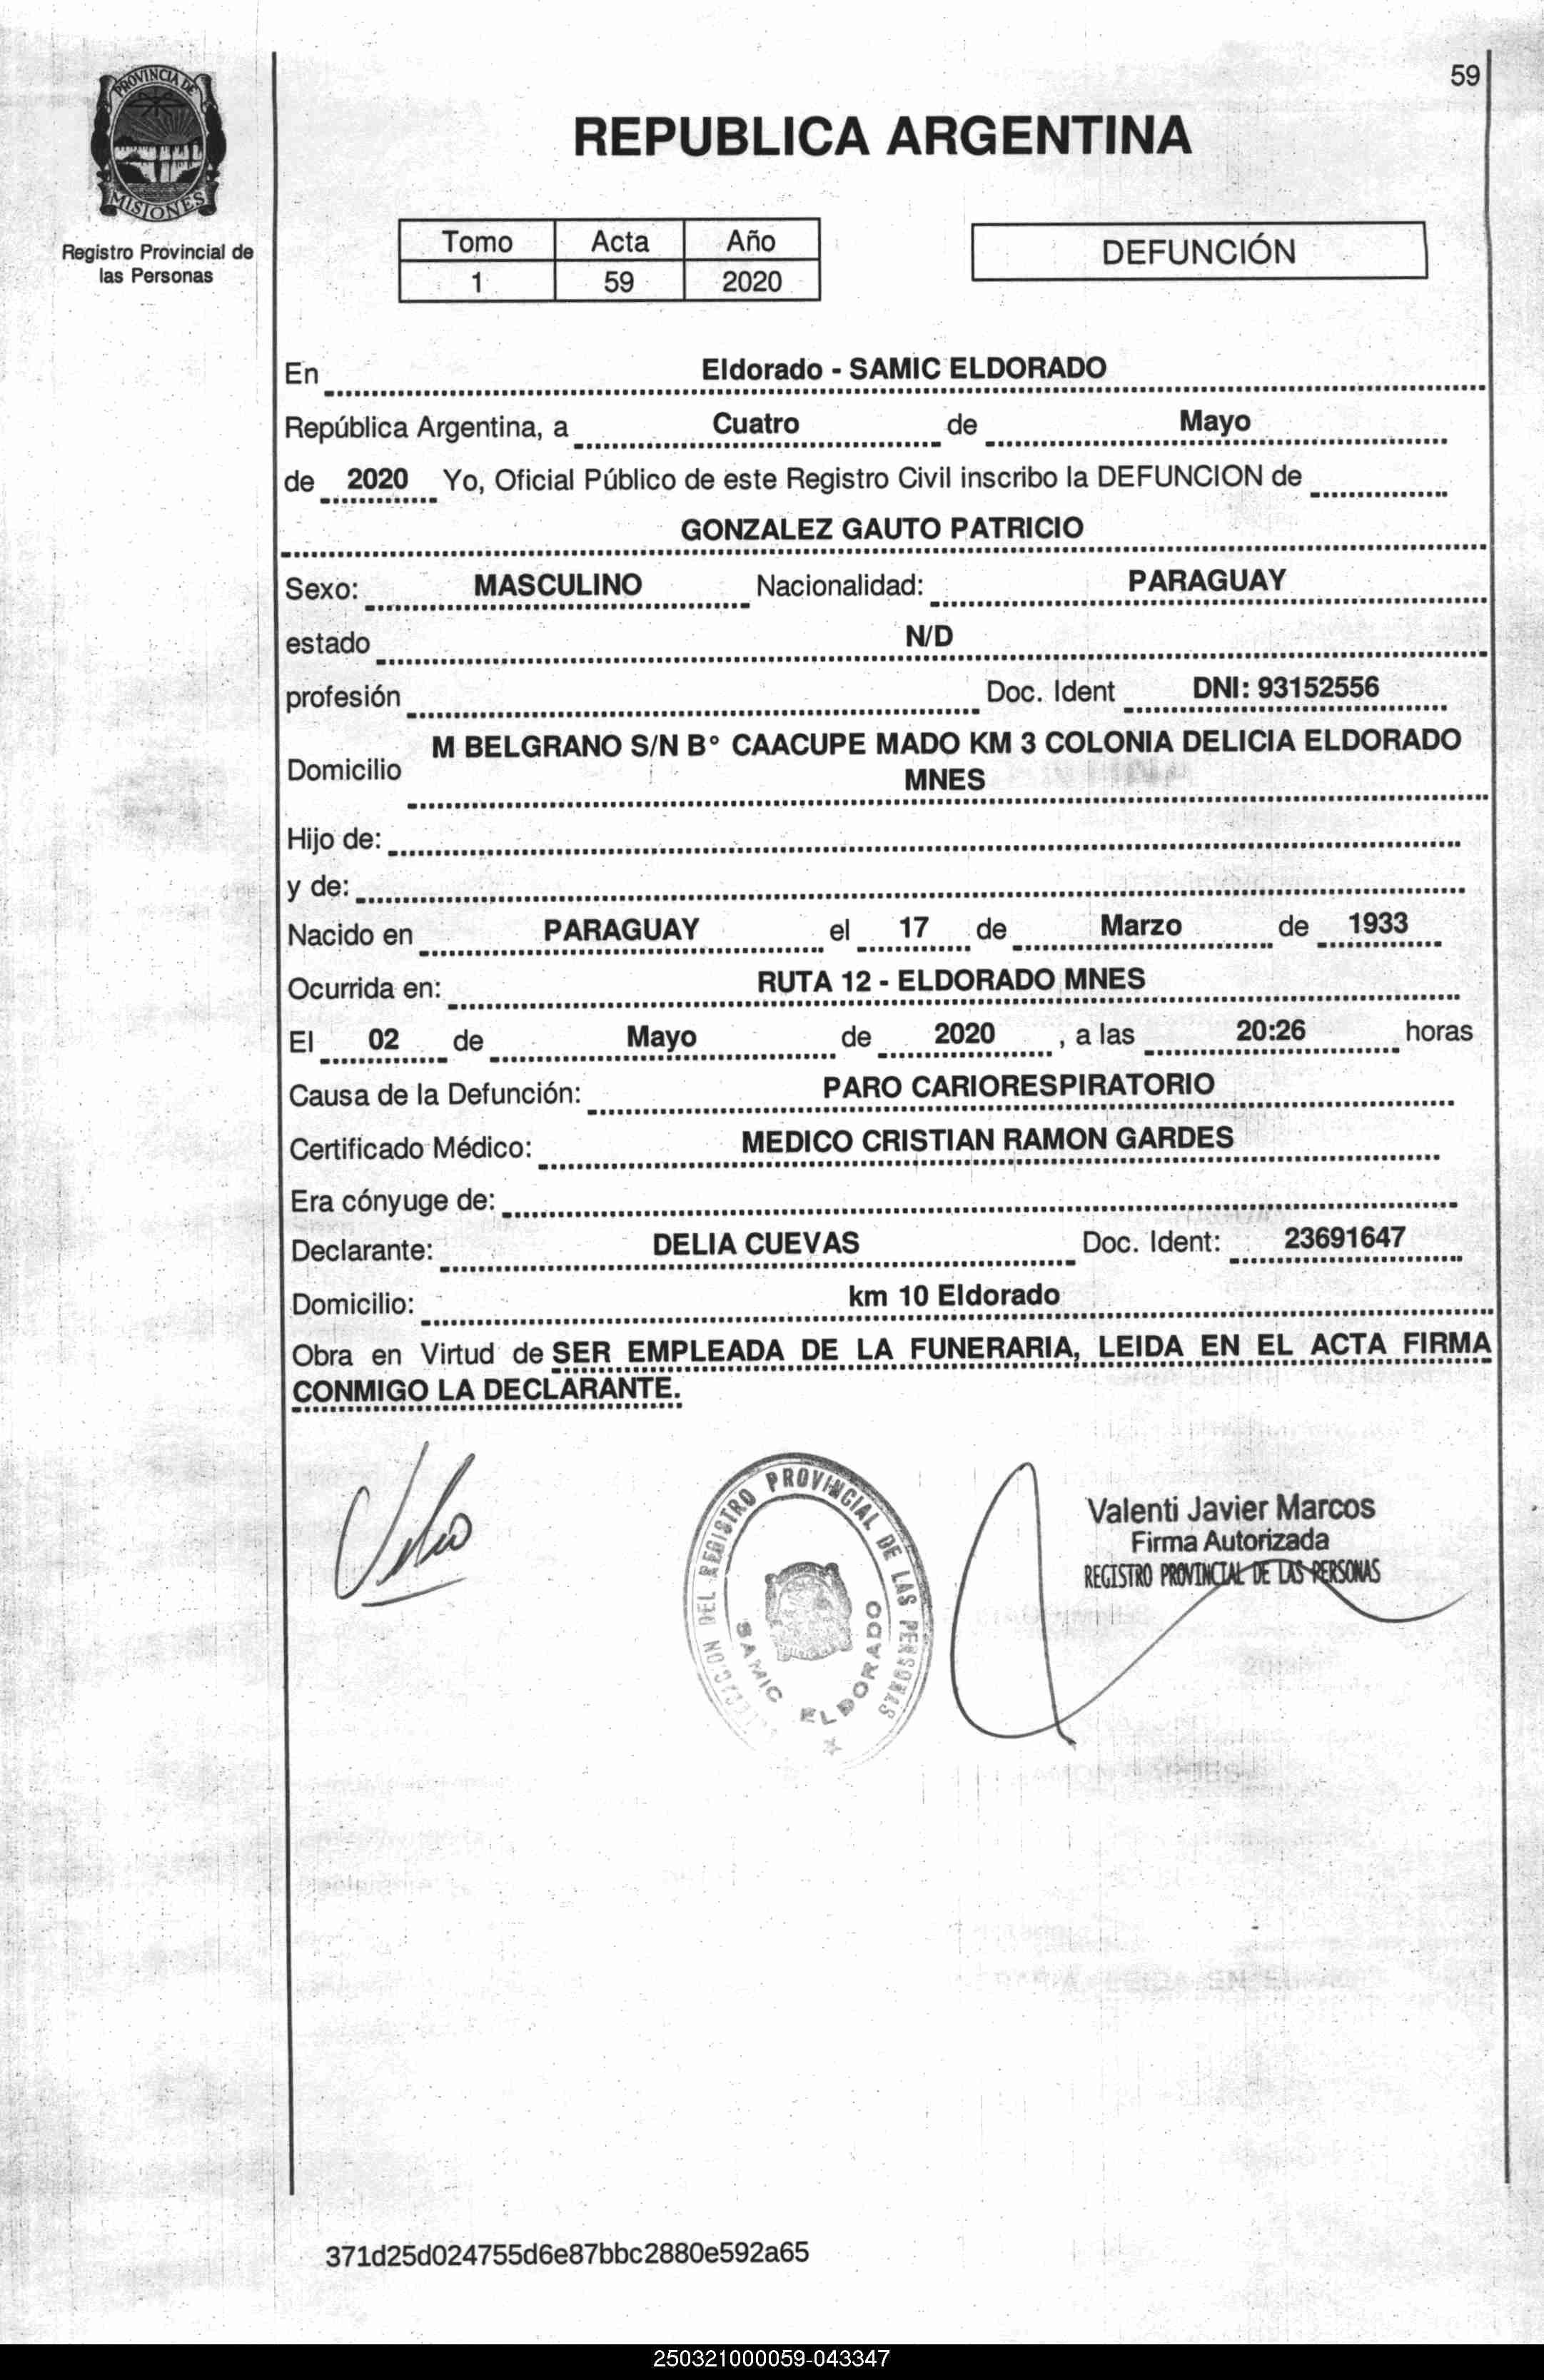 PROVINCIA DE
MISIONES
Registro Provincial de
las Personas
59
REPUBLICA ARGENTINA
Tomo Acta Año
1 59 2020
DEFUNCIÓN
En Eldorado - SAMIC ELDORADO
República Argentina, a Cuatro de Mayo
de 2020 Yo, Oficial Público de este Registro Civil inscribo la DEFUNCION de
GONZALEZ GAUTO PATRICIO
Sexo: MASCULINO Nacionalidad: PARAGUAY
estado N/D
profesión Doc. Ident DNI: 93152556
Domicilio M BELGRANO S/N B° CAACUPE MADO KM 3 COLONIA DELICIA ELDORADO
MNES
Hijo de:
y de:
Nacido en PARAGUAY el 17 de Marzo de 1933
Ocurrida en: RUTA 12 - ELDORADO MNES
El 02 de Mayo de 2020 , a las 20:26 horas
Causa de la Defunción: PARO CARIORESPIRATORIO
Certificado Médico: MEDICO CRISTIAN RAMON GARDES
Era cónyuge de:
Declarante: DELIA CUEVAS Doc. Ident: 23691647
Domicilio: km 10 Eldorado
Obra en Virtud de SER EMPLEADA DE LA FUNERARIA, LEIDA EN EL ACTA FIRMA
CONMIGO LA DECLARANTE.
DEL REGISTRO PROVINCIAL DE LAS PERSONAS
SAMIC ELDORADO
Valenti Javier Marcos
Firma Autorizada
REGISTRO PROVINCIAL DE LAS PERSONAS
371d25d024755d6e87bbc2880e592a65
250321000059-043347